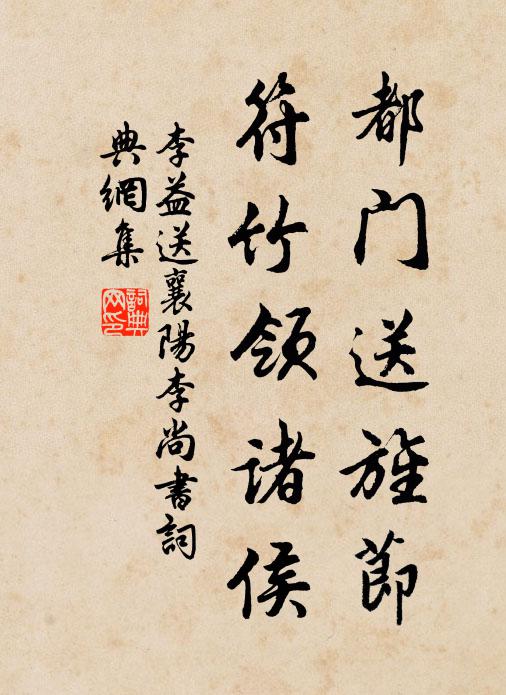 都门送旌節
符竹领诸侯
李益送襄陽李尚書詞
典網集
詞典網印